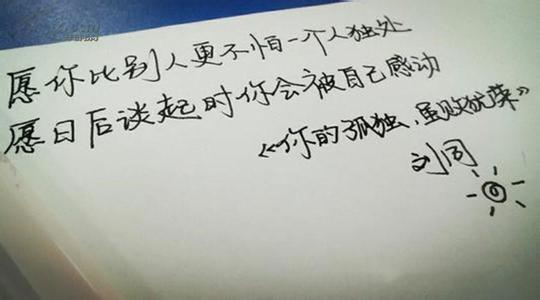 愿你比别人更不怕一个人独处
愿日后谈起时你会被自己感动
《你的孤独,虽败犹荣》
刘同